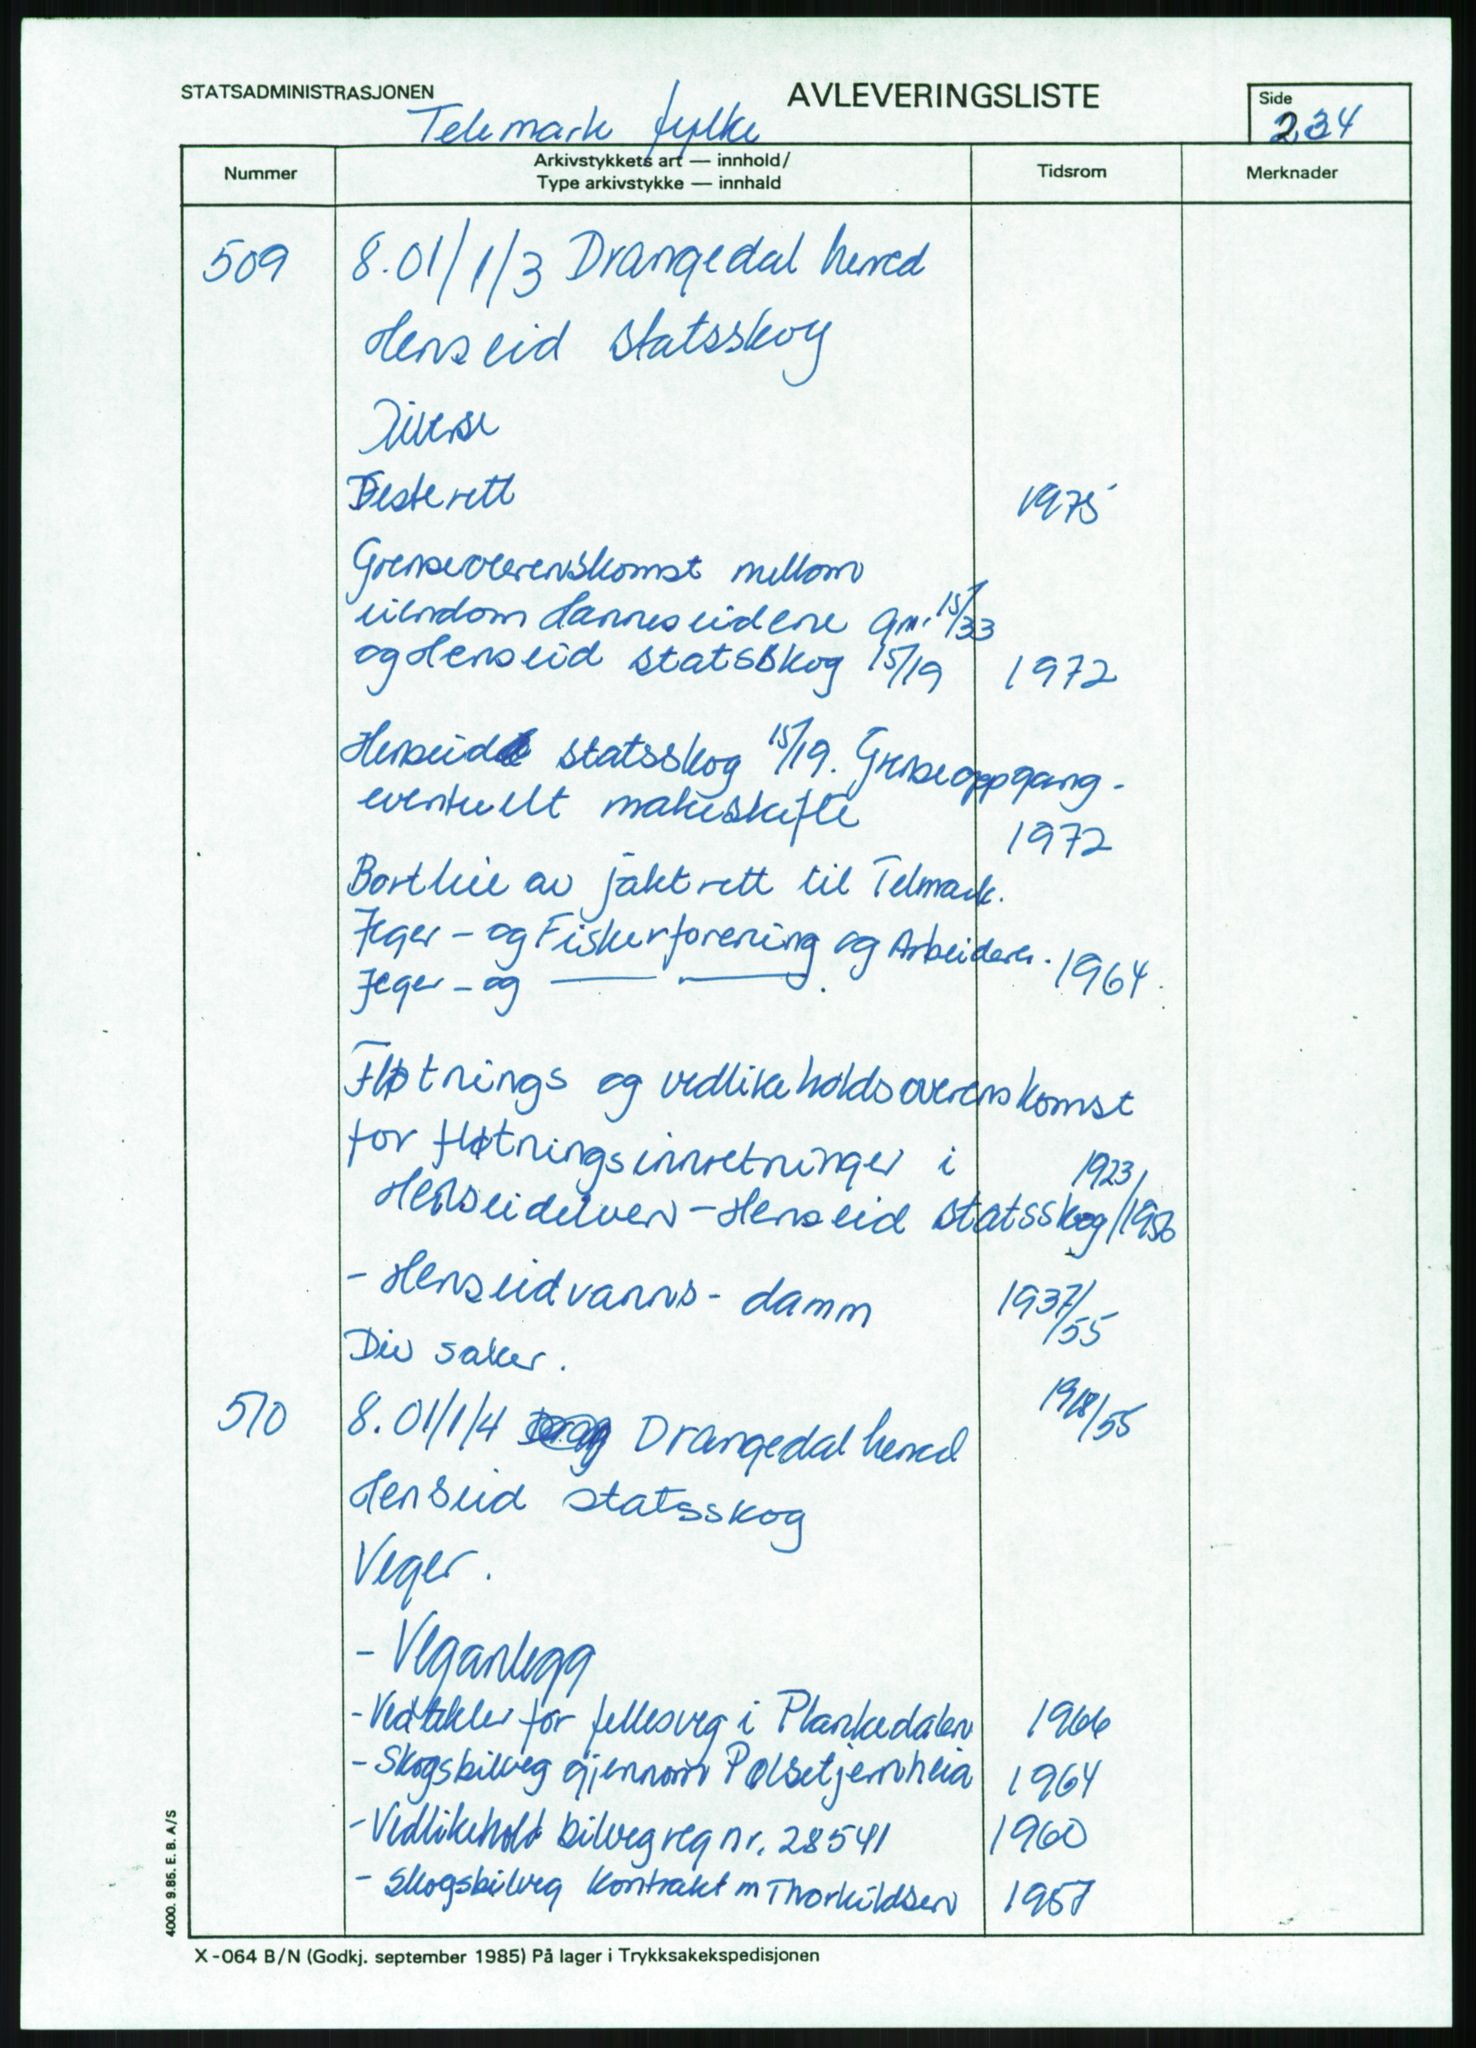 STATSADMINISTRASJONEN
AVLEVERINGSLISTE
Side
234
Telemark fylke
Nummer
Arkivstykkets art — innhold/
Type arkivstykke — innhald
Tidsrom
Merknader
509 8.01/1/3 Drangedal herred
Henseid statsskog
Diverse
Festerett 1975
Grenseoverenskomst mellom
eiendom Hanneseidene gnr. 15/33
og Henseid statsskog 15/19 1972
Henseid statsskog 15/19. Grenseoppgang -
eventuelt makeskifte 1972
Bortleie av jaktrett til Telmark.
Jeger - og Fiskerforening og Arbeidern. 1964.
Jeger - og — —.
Fløtnings og vedlikeholdsoverenskomst
for fløtningsinnretninger i 1923/
Henseidelven - Henseid statsskog /1956
- Henseidvanns - damm 1937/55
Div saker.
510 8.01/1/4 Drangedal herred 1918/55
Henseid statsskog
Veger.
- Veganlegg
- Vedtekter for fellesveg i Plankedalen 1966
- Skogsbilveg gjennom Pølsetjernheia 1964
- Vedlikehold bilveg reg nr. 28541 1960
- Skogsbilveg kontrakt m Thorkildsen 1957
4000. 9.85. E. B. A/S
X-064 B/N (Godkj. september 1985) På lager i Trykksakekspedisjonen